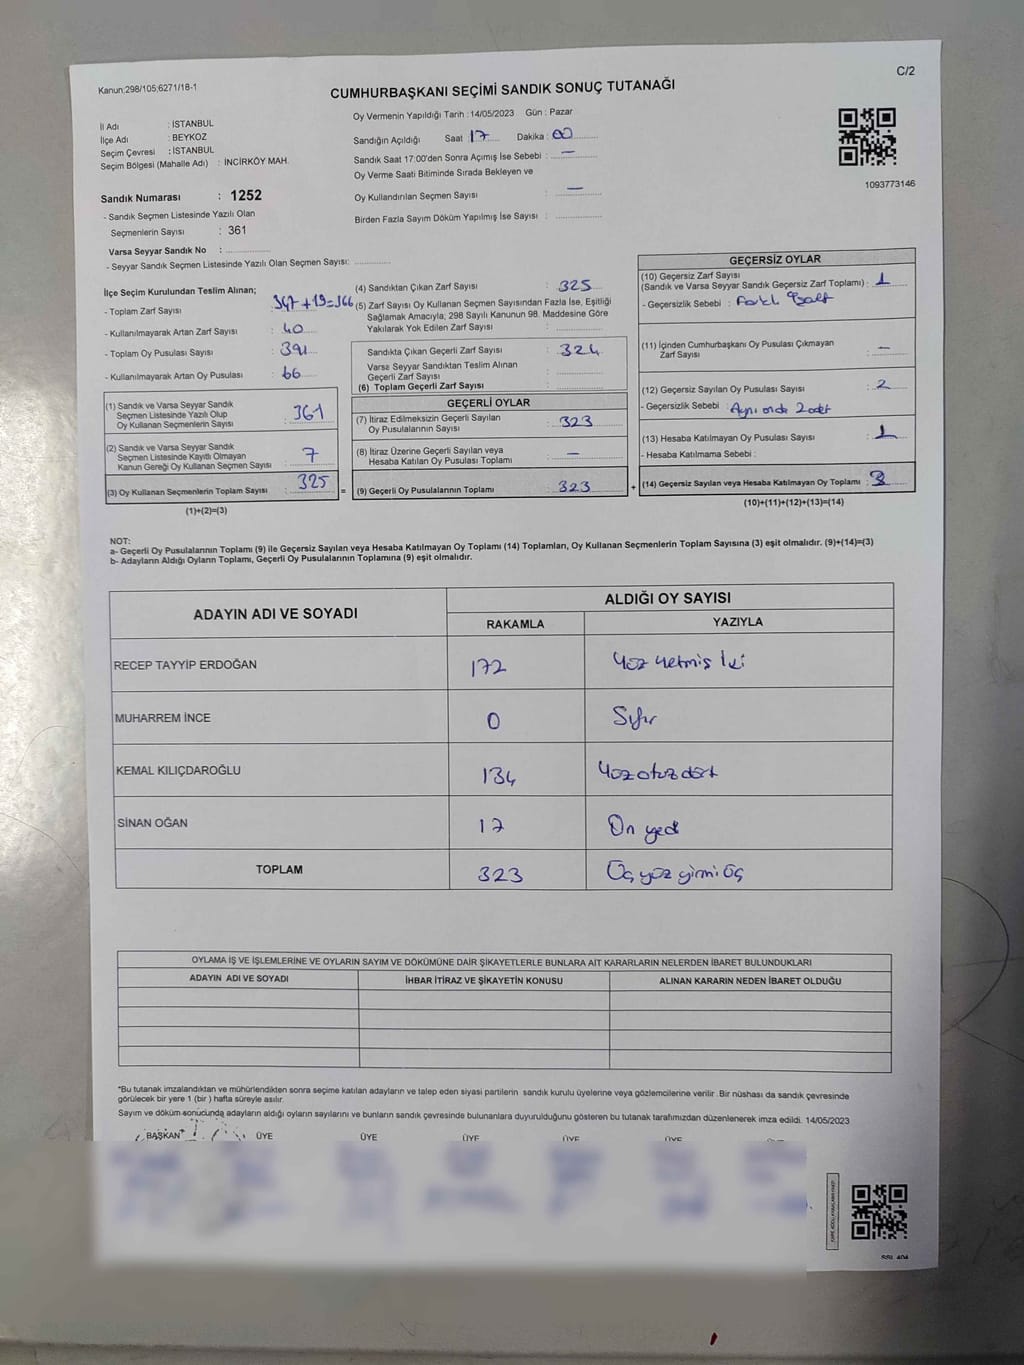 Kanun;298/105;6271/18-1
C/2
CUMHURBAŞKANI SEÇİMİ SANDIK SONUÇ TUTANAĞI
İl Adı : İSTANBUL
İlçe Adı : BEYKOZ
Seçim Çevresi : İSTANBUL
Seçim Bölgesi (Mahalle Adı) : İNCİRKÖY MAH.
Sandık Numarası : 1252
- Sandık Seçmen Listesinde Yazılı Olan
Seçmenlerin Sayısı : 361
Varsa Seyyar Sandık No :
- Seyyar Sandık Seçmen Listesinde Yazılı Olan Seçmen Sayısı:
Oy Vermenin Yapıldığı Tarih : 14/05/2023 Gün : Pazar
Sandığın Açıldığı Saat 17 Dakika : 00
Sandık Saat 17:00'den Sonra Açımış İse Sebebi : —
Oy Verme Saati Bitiminde Sırada Bekleyen ve
Oy Kullandırılan Seçmen Sayısı : —
Birden Fazla Sayım Döküm Yapılmış İse Sayısı :
1093773146
İlçe Seçim Kurulundan Teslim Alınan;
- Toplam Zarf Sayısı : 347+19=366
- Kullanılmayarak Artan Zarf Sayısı : 40
- Toplam Oy Pusulası Sayısı : 391
- Kullanılmayarak Artan Oy Pusulası : 66
(1) Sandık ve Varsa Seyyar Sandık
Seçmen Listesinde Yazılı Olup
Oy Kullanan Seçmenlerin Sayısı : 361
(2) Sandık ve Varsa Seyyar Sandık
Seçmen Listesinde Kayıtlı Olmayan
Kanun Gereği Oy Kullanan Seçmen Sayısı : 7
(3) Oy Kullanan Seçmenlerin Toplam Sayısı : 325
(1)+(2)=(3)
(4) Sandıktan Çıkan Zarf Sayısı : 325
(5) Zarf Sayısı Oy Kullanan Seçmen Sayısından Fazla İse, Eşitliği
Sağlamak Amacıyla; 298 Sayılı Kanunun 98. Maddesine Göre
Yakılarak Yok Edilen Zarf Sayısı :
Sandıkta Çıkan Geçerli Zarf Sayısı : 324
Varsa Seyyar Sandıktan Teslim Alınan
Geçerli Zarf Sayısı :
(6) Toplam Geçerli Zarf Sayısı :
GEÇERLİ OYLAR
(7) İtiraz Edilmeksizin Geçerli Sayılan
Oy Pusulalarının Sayısı : 323
(8) İtiraz Üzerine Geçerli Sayılan veya
Hesaba Katılan Oy Pusulası Toplamı : —
= (9) Geçerli Oy Pusulalarının Toplamı : 323 +
GEÇERSİZ OYLAR
(10) Geçersiz Zarf Sayısı
(Sandık ve Varsa Seyyar Sandık Geçersiz Zarf Toplamı) : 1
- Geçersizlik Sebebi : Farklı
(11) İçinden Cumhurbaşkanı Oy Pusulası Çıkmayan
Zarf Sayısı : —
(12) Geçersiz Sayılan Oy Pusulası Sayısı : 2
- Geçersizlik Sebebi : Aynı anda 2 adet
(13) Hesaba Katılmayan Oy Pusulası Sayısı : 1
- Hesaba Katılmama Sebebi :
(14) Geçersiz Sayılan veya Hesaba Katılmayan Oy Toplamı : 3
(10)+(11)+(12)+(13)=(14)
NOT:
a- Geçerli Oy Pusulalarının Toplamı (9) ile Geçersiz Sayılan veya Hesaba Katılmayan Oy Toplamı (14) Toplamları, Oy Kullanan Seçmenlerin Toplam Sayısına (3) eşit olmalıdır. (9)+(14)=(3)
b- Adayların Aldığı Oyların Toplamı, Geçerli Oy Pusulalarının Toplamına (9) eşit olmalıdır.
ADAYIN ADI VE SOYADI ALDIĞI OY SAYISI
RAKAMLA YAZIYLA
RECEP TAYYİP ERDOĞAN 172 Yüz yetmiş iki
MUHARREM İNCE 0 Sıfır
KEMAL KILIÇDAROĞLU 134 Yüz otuz dört
SİNAN OĞAN 17 On yedi
TOPLAM 323 Üç yüz yirmi üç
OYLAMA İŞ VE İŞLEMLERİNE VE OYLARIN SAYIM VE DÖKÜMÜNE DAİR ŞİKAYETLERLE BUNLARA AİT KARARLARIN NELERDEN İBARET BULUNDUKLARI
ADAYIN ADI VE SOYADI İHBAR İTİRAZ VE ŞİKAYETİN KONUSU ALINAN KARARIN NEDEN İBARET OLDUĞU
*Bu tutanak imzalandıktan ve mühürlendikten sonra seçime katılan adayların ve talep eden siyasi partilerin sandık kurulu üyelerine veya gözlemcilerine verilir .Bir nüshası da sandık çevresinde
görülecek bir yere 1 (bir ) hafta süreyle asılır.
Sayım ve döküm sonucunda adayların aldığı oyların sayılarını ve bunların sandık çevresinde bulunanlara duyurulduğunu gösteren bu tutanak tarafımızdan düzenlenerek imza edildi. 14/05/2023
BAŞKAN ÜYE ÜYE ÜYE ÜYE ÜYE